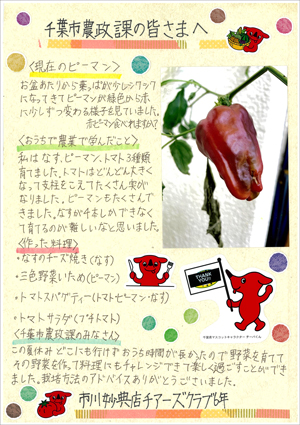 千葉市農政課の皆さまへ
〈現在のピーマン〉
お盆あたりから葉っぱが少しシックク
になってきてピーマンが緑色から赤
に少しずつ変わる様子を見ていました。
赤ピーマン食べれますか?
〈おうちで農業で学んだこと〉
私はなす、ピーマン、トマト3種類
育てました。トマトはどんどん大きく
なって支柱をこえてたくさん実が
なりました。ピーマンもたくさんで
きました。なすが4本しかできなく
て育てるのが難しいなと思いました。
〈作った料理〉
・なすのチーズ焼き(なす)
・三色野菜いため(ピーマン)
・トマトスパゲティー(トマトピーマン・なす)
・トマトサラダ(プチトマト)
THANK YOU!!
千葉県マスコットキャラクター チーバくん
〈千葉市農政課のみなさん〉
この夏休みどこにも行けずおうち時間が長かったので野菜を育てて
その野菜を作って料理にもチャレンジできて楽しく過ごすことができ
ました。栽培方法のアドバイスありがとうございました。
市川妙典店チアーズクラブ6年